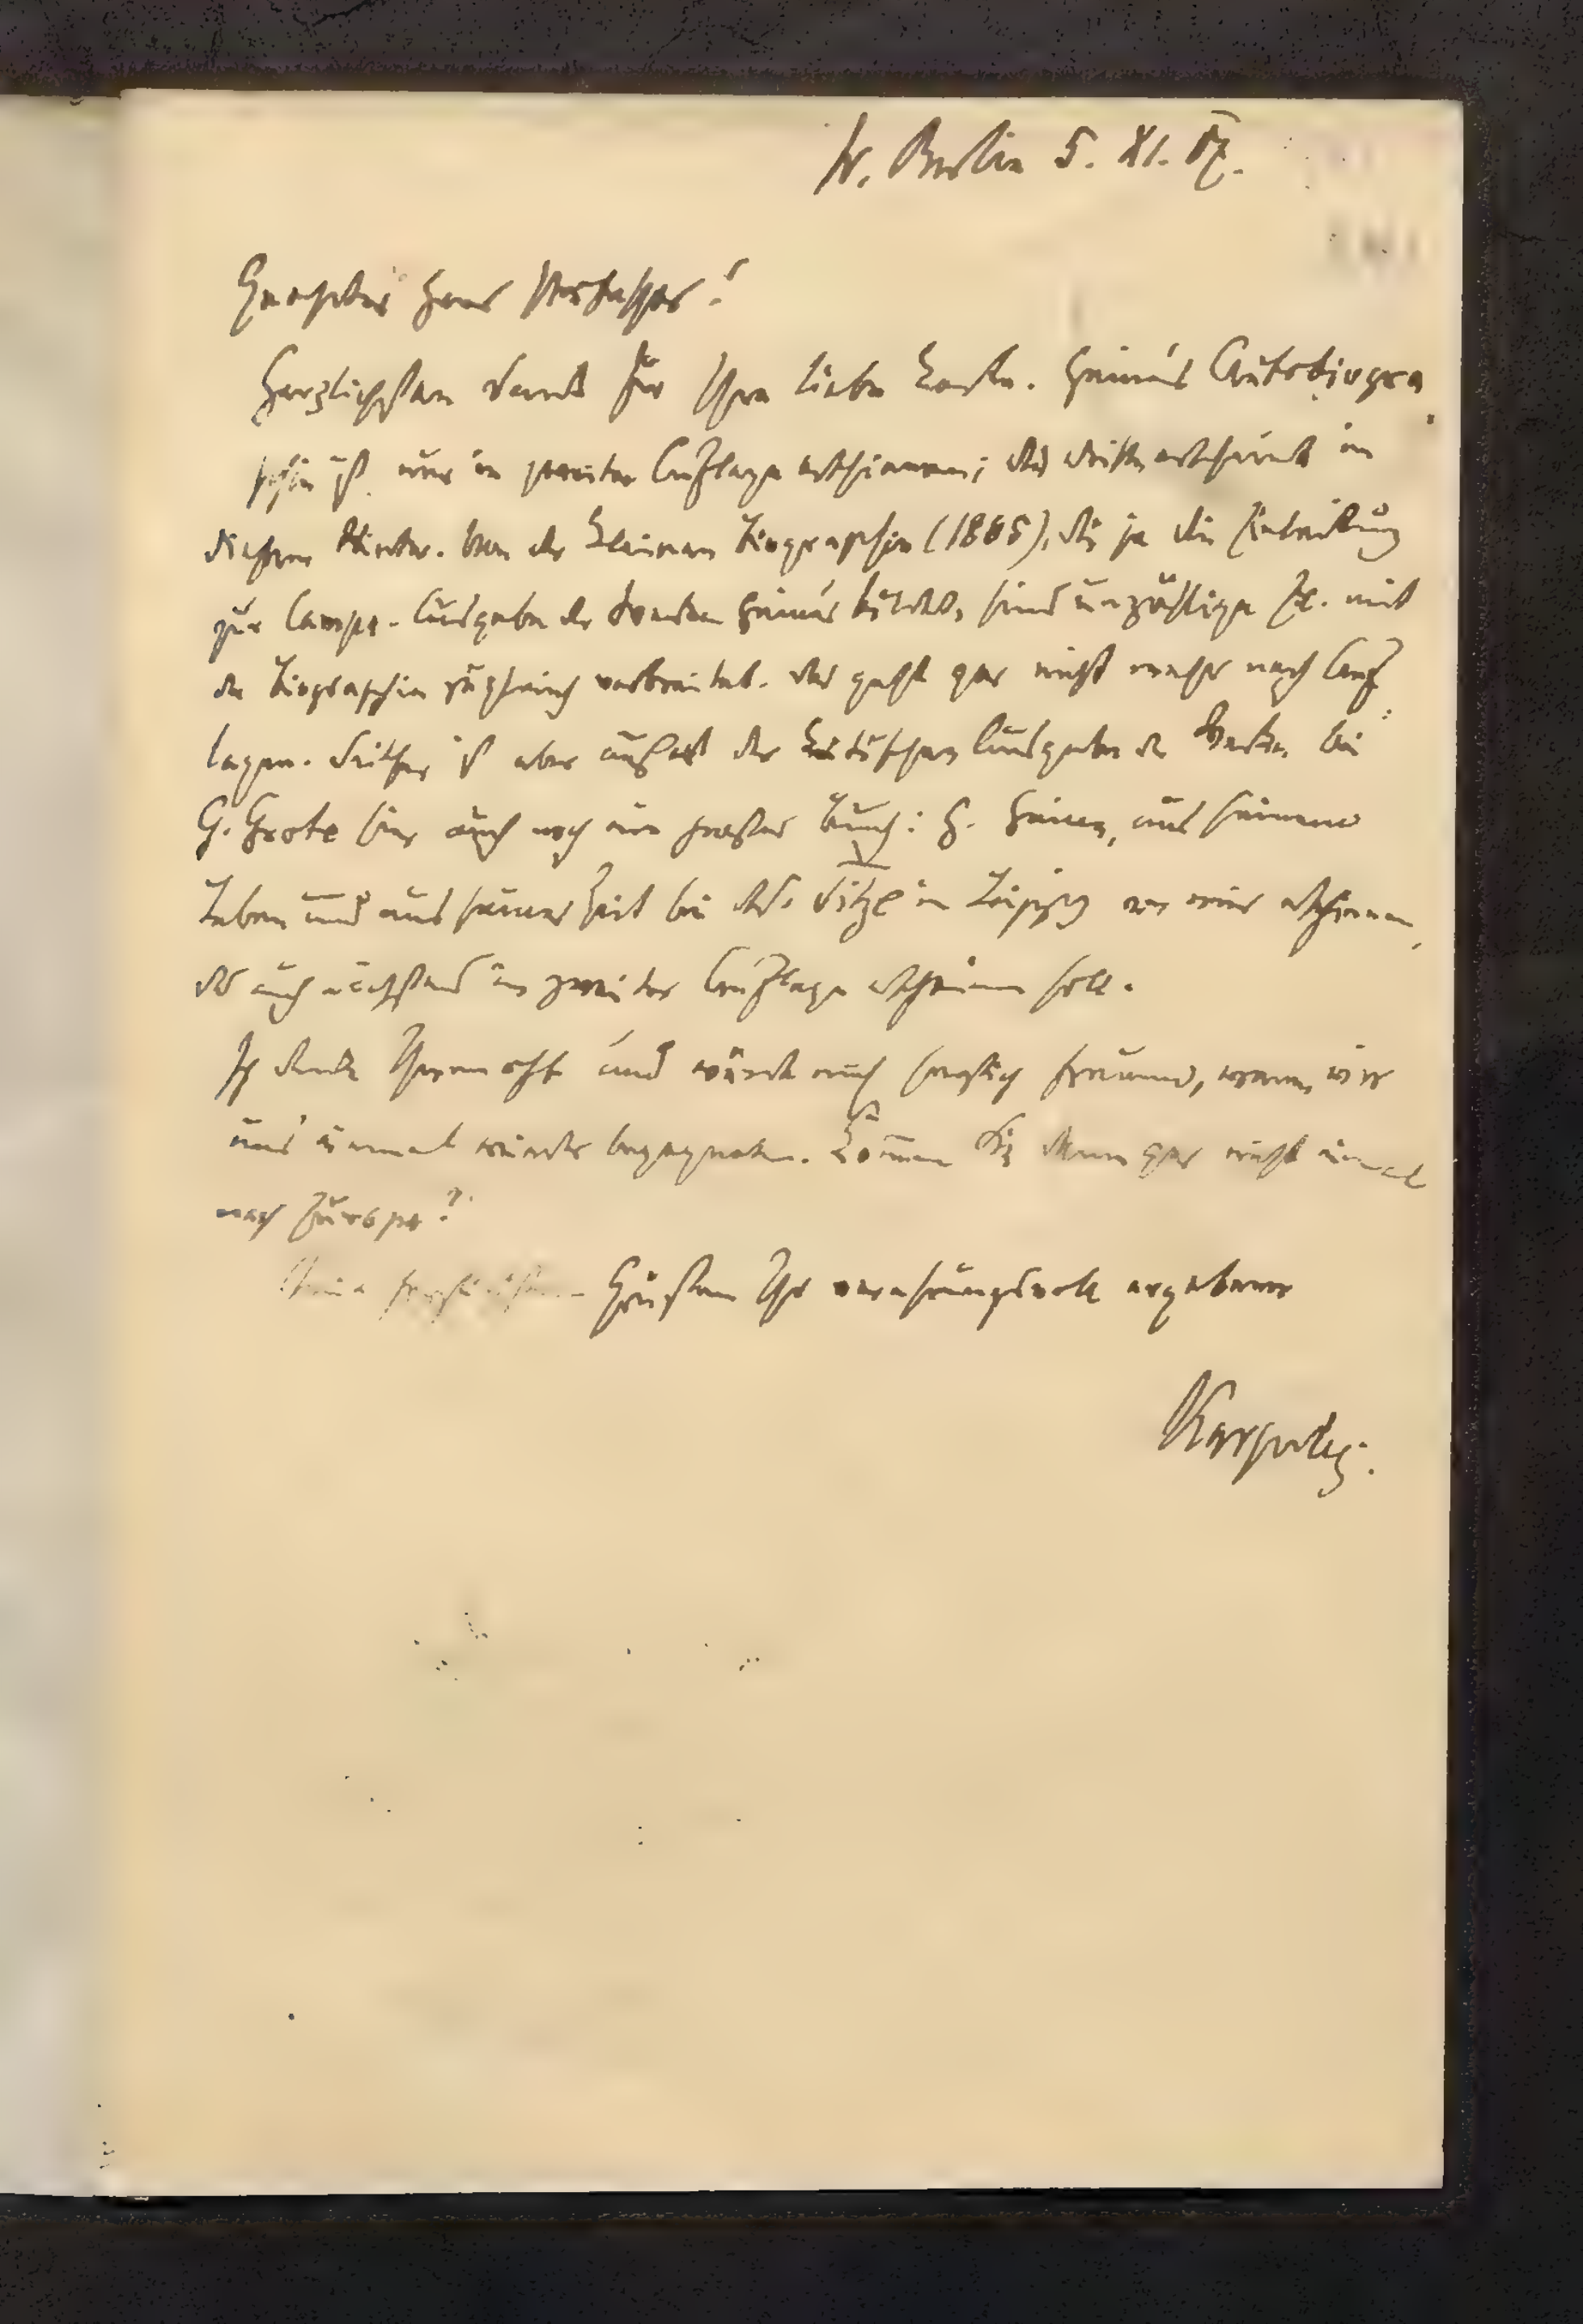 W. Berlin 5. XI. 07.
Geehrter Herr Professor!
Herzlichsten Dank für Ihre liebe Karte. Heine's Autobiogra
phie ist nur in zweiter Auflage erschienen; die dritte erscheint im
diesem Winter. Von der kleinen Biographie (1885), die ja die Einleitung
zur Campe-Ausgabe der Werke Heine's bildet, sind unzählige Ex. mit
der Biographie zugleich verbreitet. Das geht gar nicht mehr nach Auf
lagen. Seither ist aber außer der kritischen Ausgabe der Werke bei
G. Grote hier auch noch ein großes Buch: H. Heine, aus seinem
Leben und aus seiner Zeit bei Ad. Titze in Leipzig von mir erschienen,
das auch nächstens in zweiter Auflage erscheinen soll.
Ich denke Ihrer oft und würde mich herzlich freuen, wenn wir
uns einmal wieder begegneten. Kommen Sie denn gar nicht einmal
nach Europa?
Grüßen Ihr verehrungsvoll ergebener
Karpeles.